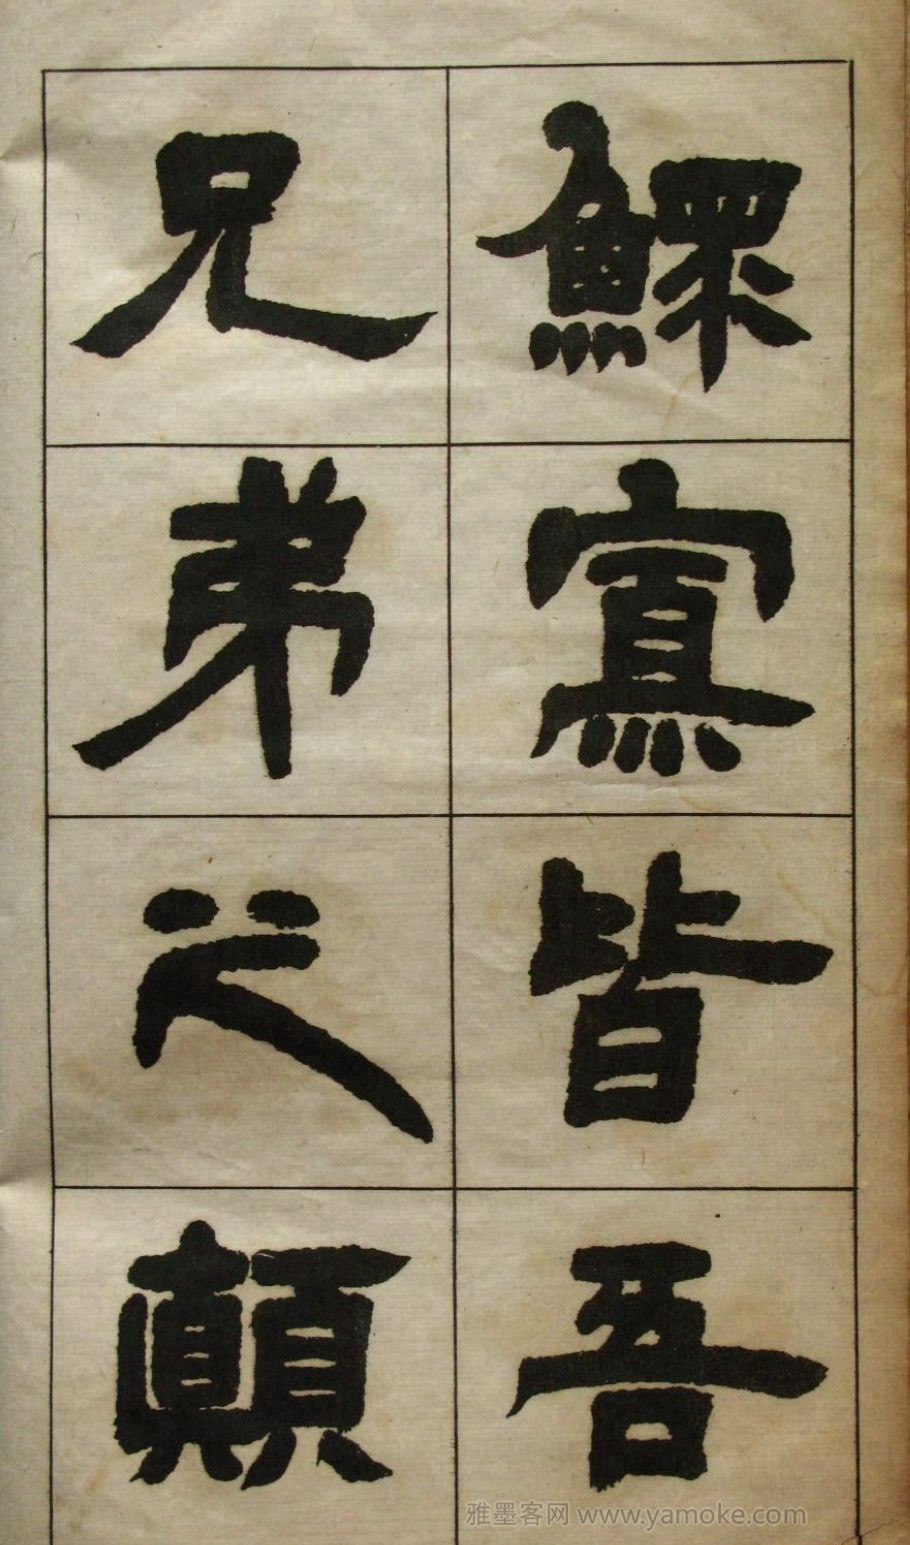 鰥寡皆吾
兄弟之顛
雅墨客网 www.yamoke.com